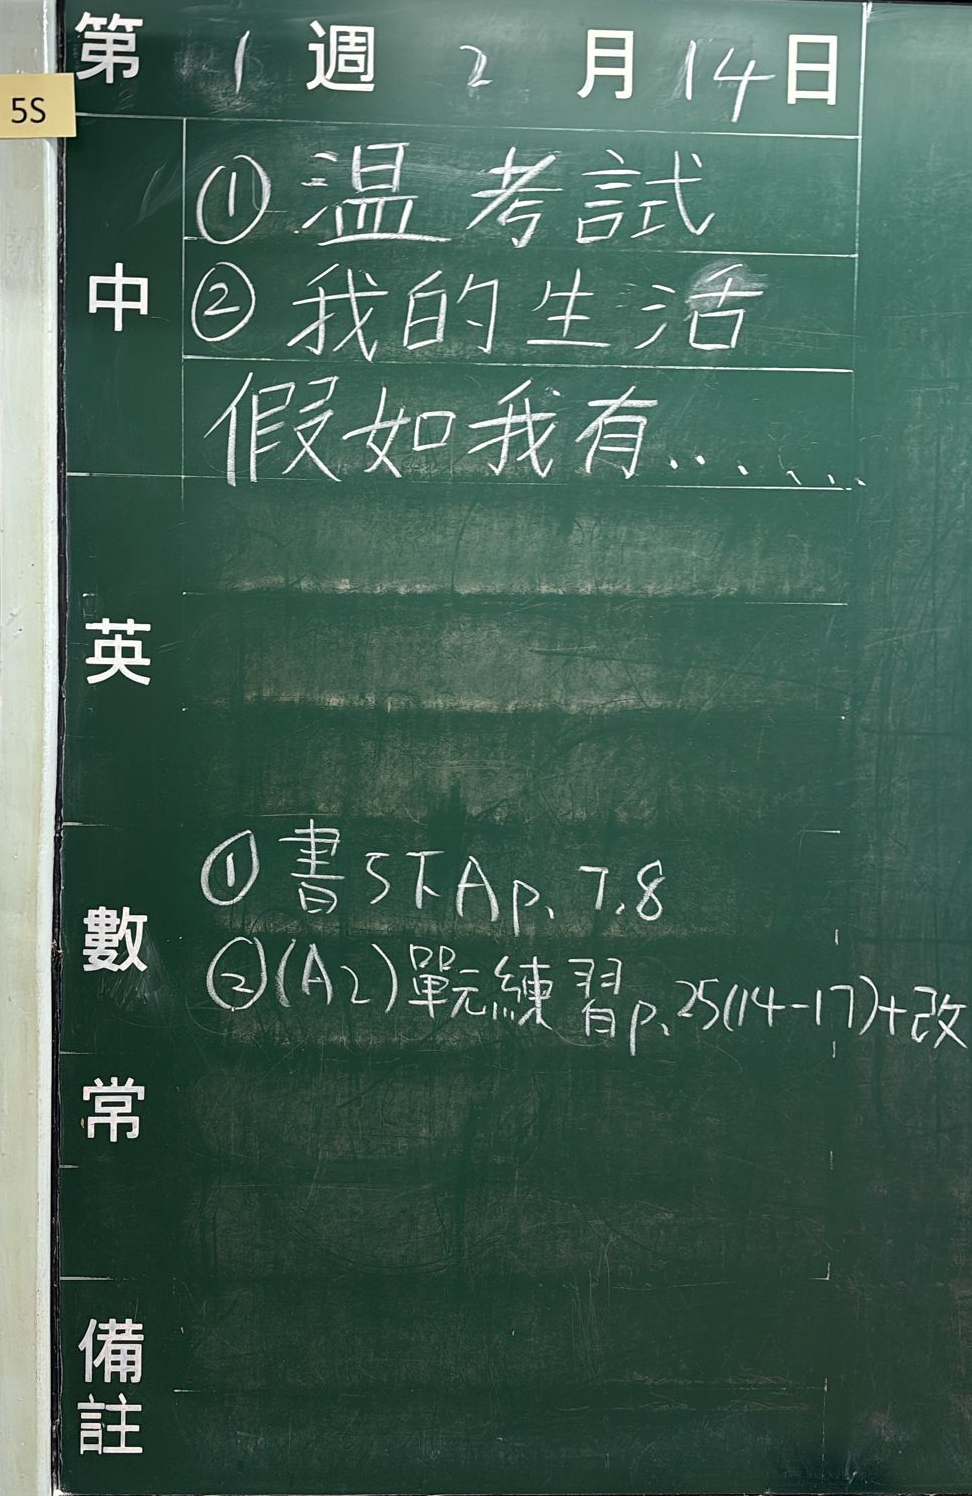 第 1 週 2 月 14 日
5S
中
① 温 考試
② 我的生活
假如我有......
英
數
① 書5下A p. 7.8
② (A2) 單元練習 p. 25(14-17)+改
常
備註